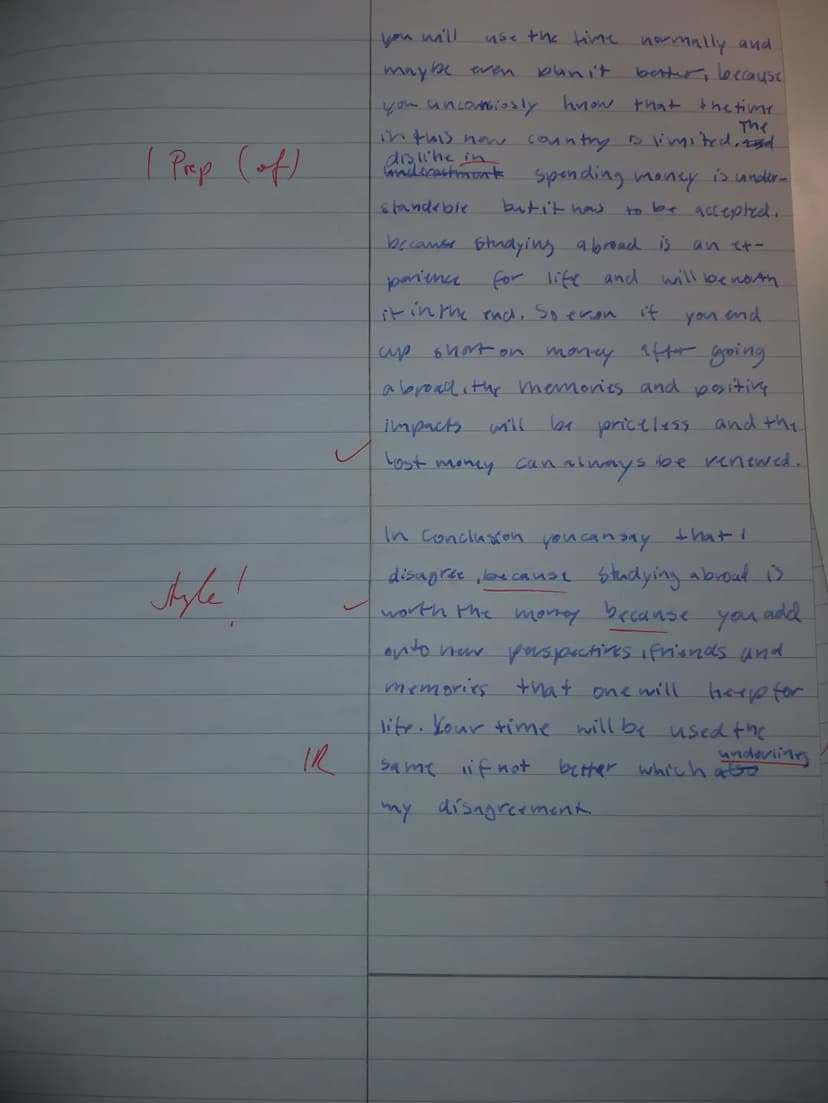 you will use the time normally and
maybe even plan it better, because
you unconsiosly know that the time
in this new country is limited. The
1 Prep (of)
dislike in spending money is under-
standeble but it has to be accepted.
because studying abroad is an ex-
perience for life and will be worth
it in the end. So even if you end
up short on money after going
abroad, the memories and positive
impacts will be priceless and the
lost money can always be renewed.
In Conclusion you can say that I
disagree, because studying abroad is
Style!
worth the money because you add
onto new perspectives, friends and
memories that one will keep for
life. Your time will be used the
1R
same, if not better which underlines
my disagreement